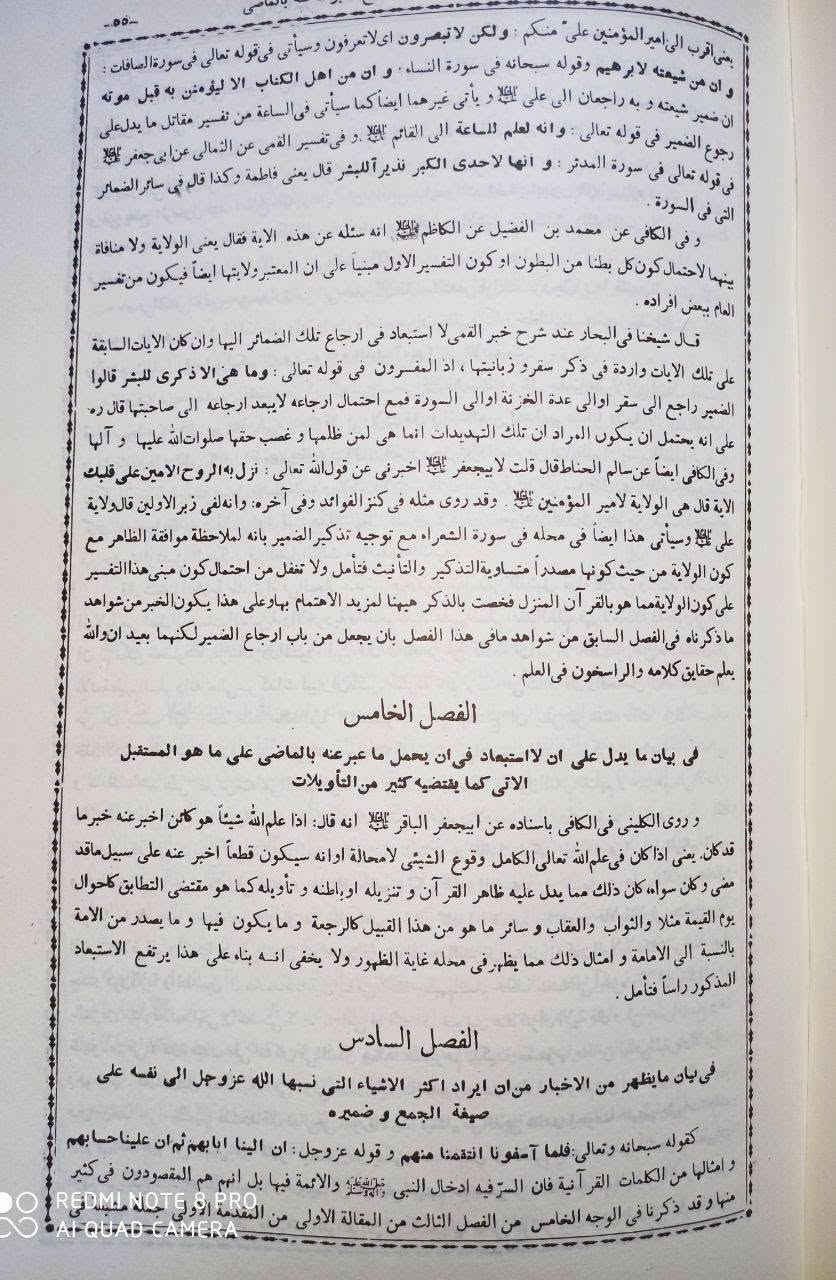 -٥٥-
يعنى اقرب الى امير المؤمنين على منكم : ولكن لا تبصرون اى لا تعرفون وسيأتى فى قوله تعالى فى سورة الصافات :
و ان من شيعته لابرهيم وقوله سبحانه فى سورة النساء : و ان من اهل الكتاب الا ليؤمنن به قبل موته
ان ضمير شيعته و به راجعان الى على عليه السلام و يأتى غيرهما ايضاً كما سيأتى فى الساعة من تفسير مقاتل ما يدل على
رجوع الضمير فى قوله تعالى : وانه لعلم للساعة الى القائم عليه السلام . و فى تفسير القمى عن الثمالى عن ابى جعفر عليه السلام
فى قوله تعالى فى سورة المدثر : و أنها لاحدى الكبر نذيراً للبشر قال يعنى فاطمة وكذا قال فى سائر الضمائر
التى فى السورة .
و فى الكافى عن محمد بن الفضيل عن الكاظم عليه السلام انه سئله عن هذه الاية فقال يعنى الولاية ولا منافاة
بينهما لاحتمال كون كل بطنا من البطون او كون التفسير الاول مبنياً على ان المعتبر ولايتها ايضاً فيكون من تفسير
العام ببعض افراده .
قال شيخنا فى البحار عند شرح خبر القمى لا استبعاد فى ارجاع تلك الضمائر اليها وان كان الايات السابقة
على تلك الايات واردة فى ذكر سقر و زبانيتها ، اذ المفسرون فى قوله تعالى : وما هى الا ذكرى للبشر قالوا
الضمير راجع الى سقر اوالى عدة الخزنة اوالى السورة فمع احتمال ارجاعه لا يبعد ارجاعه الى صاحبتها قال ره
على انه يحتمل ان يكون المراد ان تلك التهديدات انما هى لمن ظلمها و غصب حقها صلوات الله عليها و آلها
وفى الكافى ايضاً عن سالم الحناط قال قلت لابيجعفر عليه السلام اخبرنى عن قول الله تعالى : نزل به الروح الامين على قلبك
الاية قال هى الولاية لامير المؤمنين عليه السلام . وقد روى مثله فى كنز الفوائد وفى آخره: وانه لفى زبر الاولين قال ولاية
على عليه السلام وسيأتى هذا ايضاً فى محله فى سورة الشعراء مع توجيه تذكير الضمير بانه لملاحظة موافقة الظاهر مع
كون الولاية من حيث كونها مصدراً متساوية التذكير والتأنيث فتأمل ولا تغفل من احتمال كون مبنى هذا التفسير
على كون الولاية مما هو بالقرآن المنزل فخصت بالذكر هيهنا لمزيد الاهتمام بها وعلى هذا يكون الخبر من شواهد
ما ذكرناه فى الفصل السابق من شواهد ما فى هذا الفصل بان يجعل من باب ارجاع الضمير لكنهما بعيد ان والله
يعلم حقايق كلامه والراسخون فى العلم .
الفصل الخامس
فى بيان ما يدل على ان لا استبعاد فى ان يحمل ما عبر عنه بالماضى على ما هو المستقبل
الاتى كما يقتضيه كثير من التأويلات
و روى الكلينى فى الكافى باسناده عن ابيجعفر الباقر عليه السلام انه قال: اذا علم الله شيئاً هو كائن اخبر عنه خبر ما
قد كان. يعنى اذا كان فى علم الله تعالى الكامل وقوع الشيئى لا محالة او انه سيكون قطعاً اخبر عنه على سبيل ما قد
مضى وكان سواء كان ذلك مما يدل عليه ظاهر القرآن و تنزيله او باطنه و تأويله كما هو مقتضى التطابق كاحوال
يوم القيمة مثلا والثواب والعقاب و سائر ما هو من هذا القبيل كالرجعة و ما يكون فيها و ما يصدر من الامة
بالنسبة الى الامامة و امثال ذلك مما يظهر فى محله غاية الظهور ولا يخفى انه بناء على هذا يرتفع الاستبعاد
المذكور راساً فتأمل .
الفصل السادس
فى بيان ما يظهر من الاخبار من ان ايراد اكثر الاشياء التى نسبها الله عز وجل الى نفسه على
صيغة الجمع و ضميره
كقوله سبحانه وتعالى: فلما آسفونا انتقمنا منهم و قوله عز وجل : ان الينا ايابهم ثم ان علينا حسابهم
و امثالها من الكلمات القرآنية فان السرّ فيه ادخال النبى صلى الله عليه وآله والائمة فيها بل انهم هم المقصودون فى كثير
منها و قد ذكرنا فى الوجه الخامس من الفصل الثالث من المقالة الاولى من المقدمة الاولى
REDMI NOTE 8 PRO
AI QUAD CAMERA